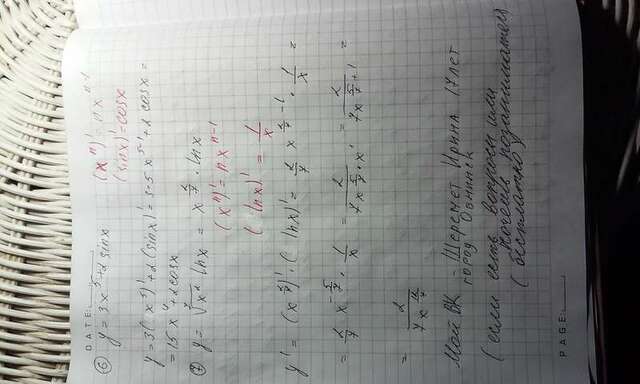 DATE:
⑥ y = 3x⁵ + 2 sinx (xⁿ)' = nxⁿ⁻¹
(sinx)' = cosx
y = 3(x⁵)' + 2(sinx)' = 3·5x⁵⁻¹ + 2cosx =
= 15x⁴ + 2cosx
⑦ y = ⁷√x² lnx = x^(2/7) · lnx
(xⁿ)' = nxⁿ⁻¹
(lnx)' = 1/x
y' = (x^(2/7))' · (lnx)' = 2/7 x^(2/7 - 1) · 1/x =
= 2/7 x^(-5/7) · 1/x = 2/(7x^(5/7) · x¹) = 2/(7x^(5/7 + 1)) =
= 2/(7x^(12/7))
Мой ВК - Шеремет Ирина 17лет
город Обнинск
(если есть вопросы или
хочешь позаниматься
(бесплатно)
PAGE: